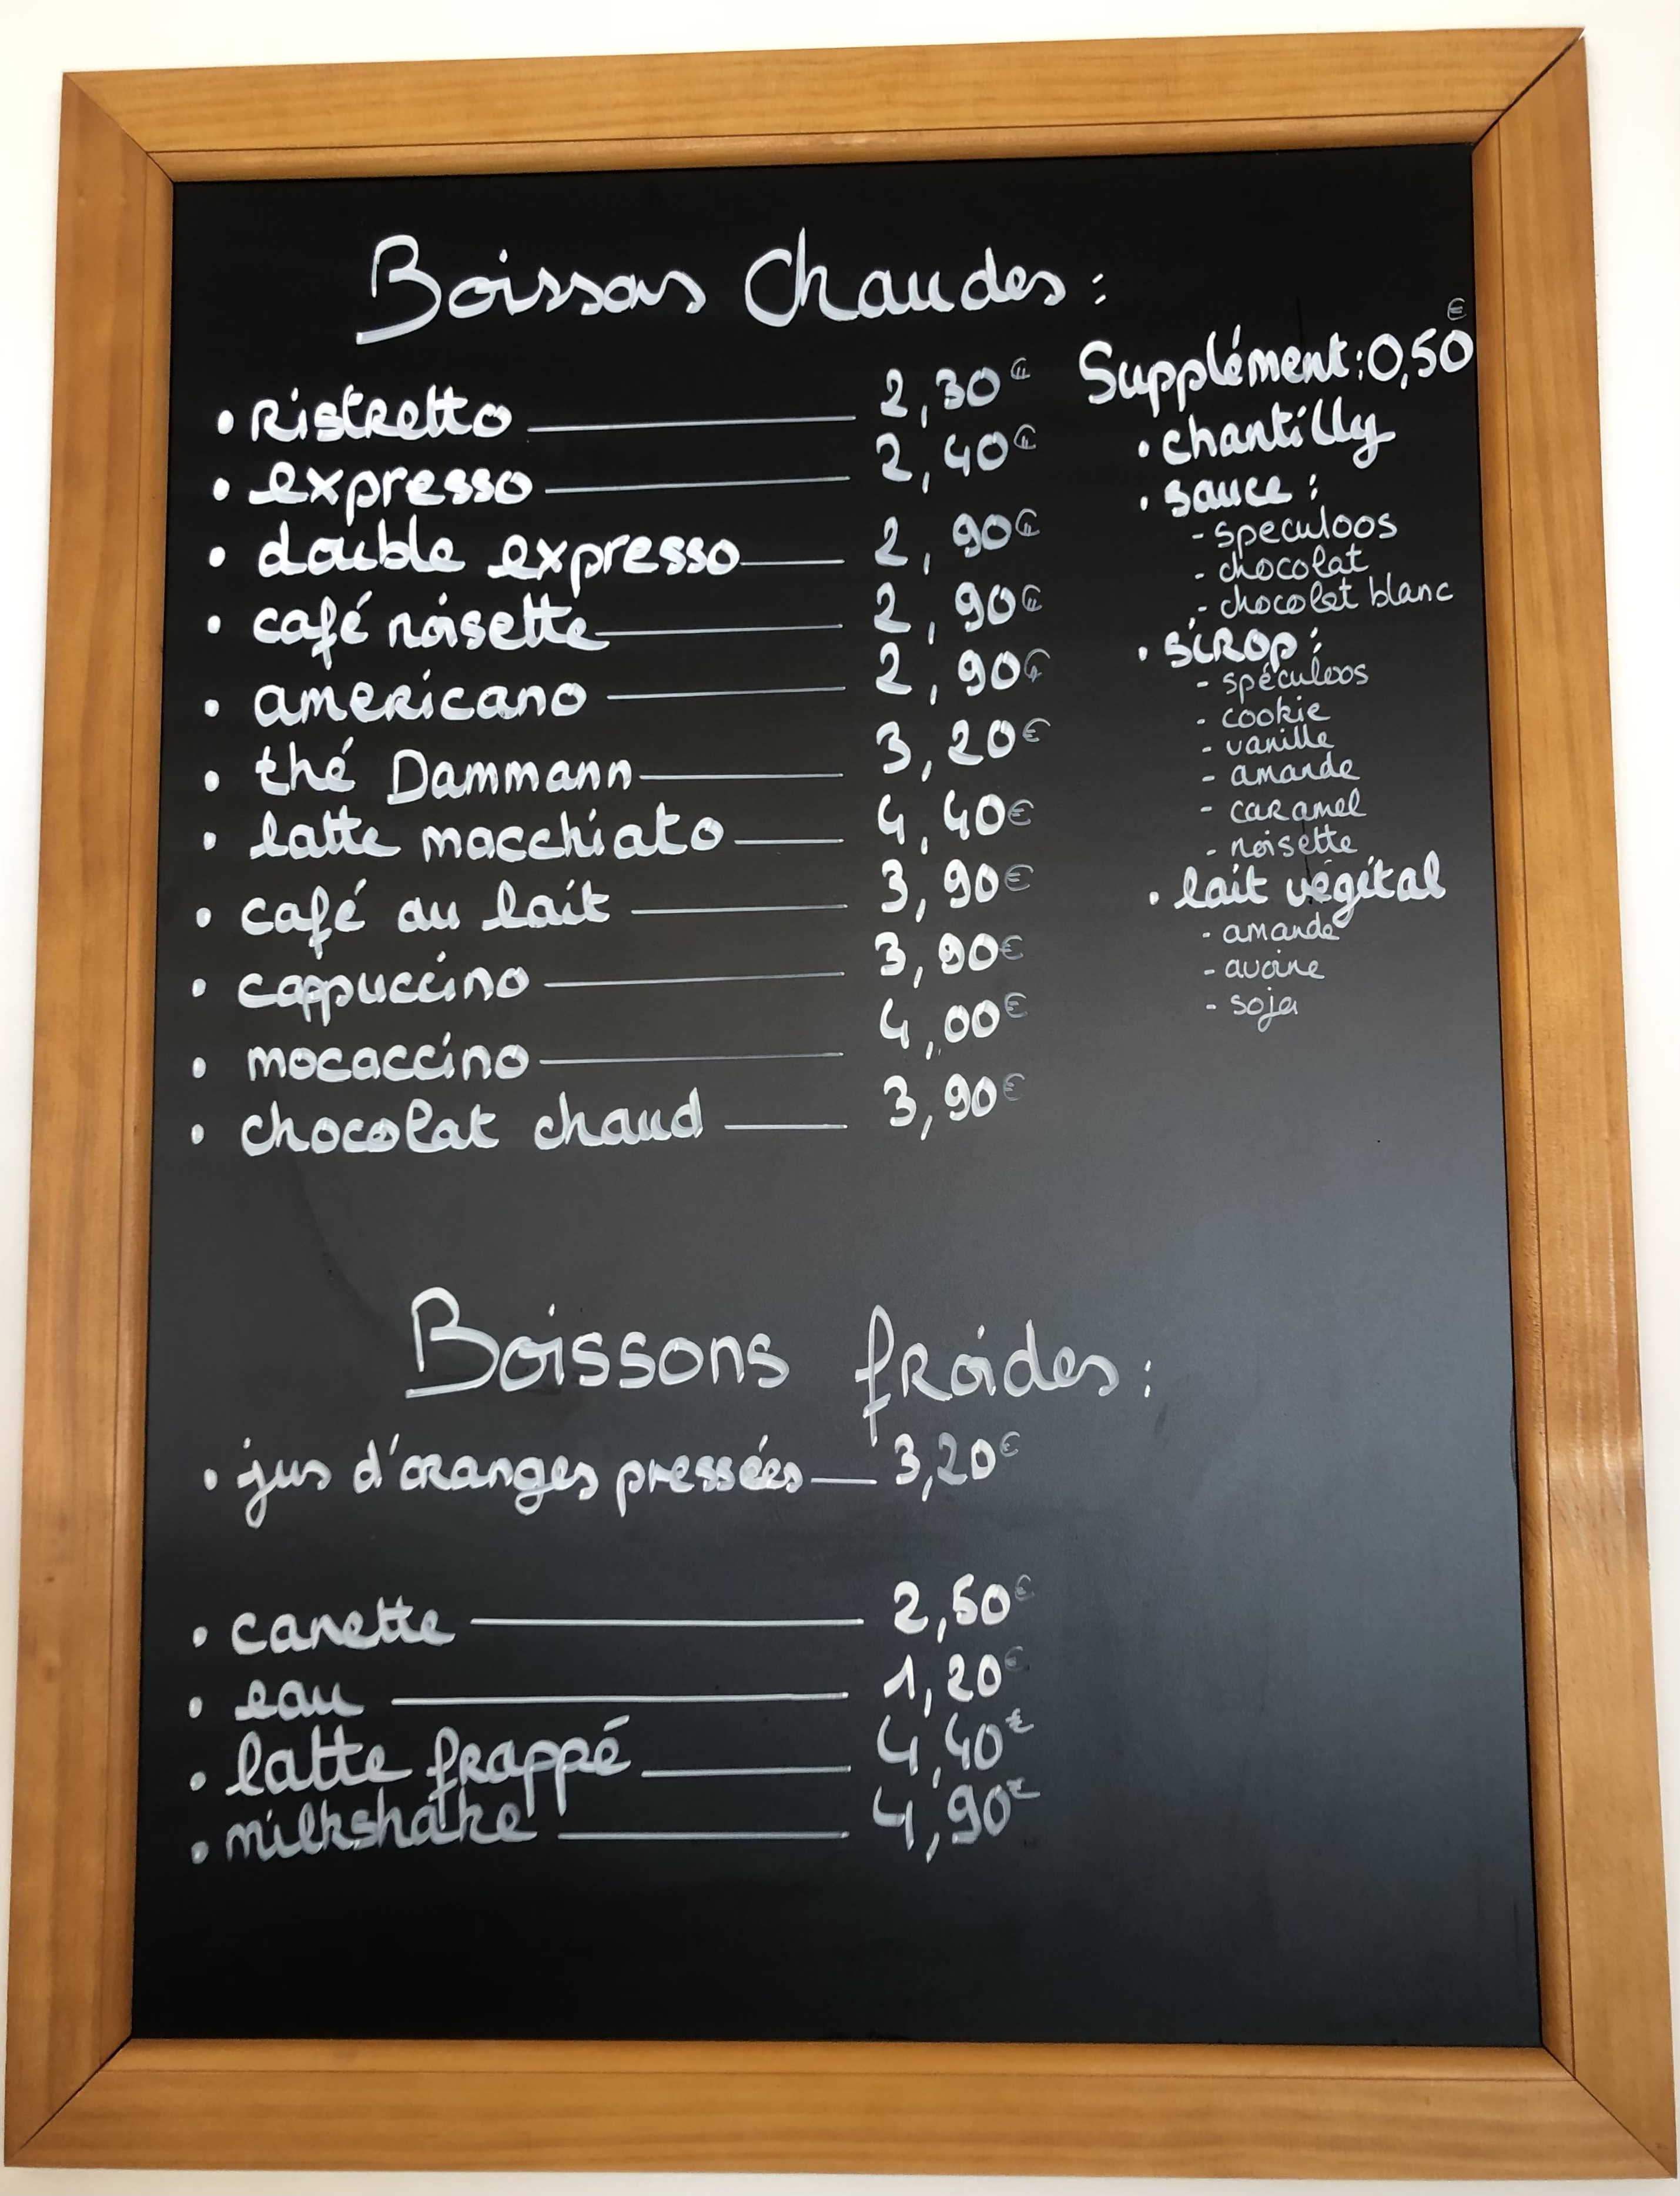 Boissons Chaudes :
• Ristretto 2,30€
• expresso 2,40€
• double expresso 2,90€
• café noisette 2,90€
• americano 2,90€
• thé Dammann 3,20€
• latte macchiato 4,40€
• café au lait 3,90€
• cappuccino 3,90€
• mocaccino 4,00€
• chocolat chaud 3,90€
Supplément : 0,50€
• chantilly
• sauce :
- speculoos
- chocolat
- chocolat blanc
• sirop :
- spéculoos
- cookie
- vanille
- amande
- caramel
- noisette
• lait végétal
- amande
- avoine
- soja
Boissons froides :
• jus d'oranges pressées 3,20€
• canette 2,50€
• eau 1,20€
• latte frappé 4,40€
• milkshake 4,90€